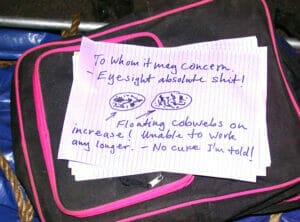 To whom it may concern.
- Eyesight absolute shit!
Floating cobwebs on
increase! Unable to work
any longer. - No cure I'm told!